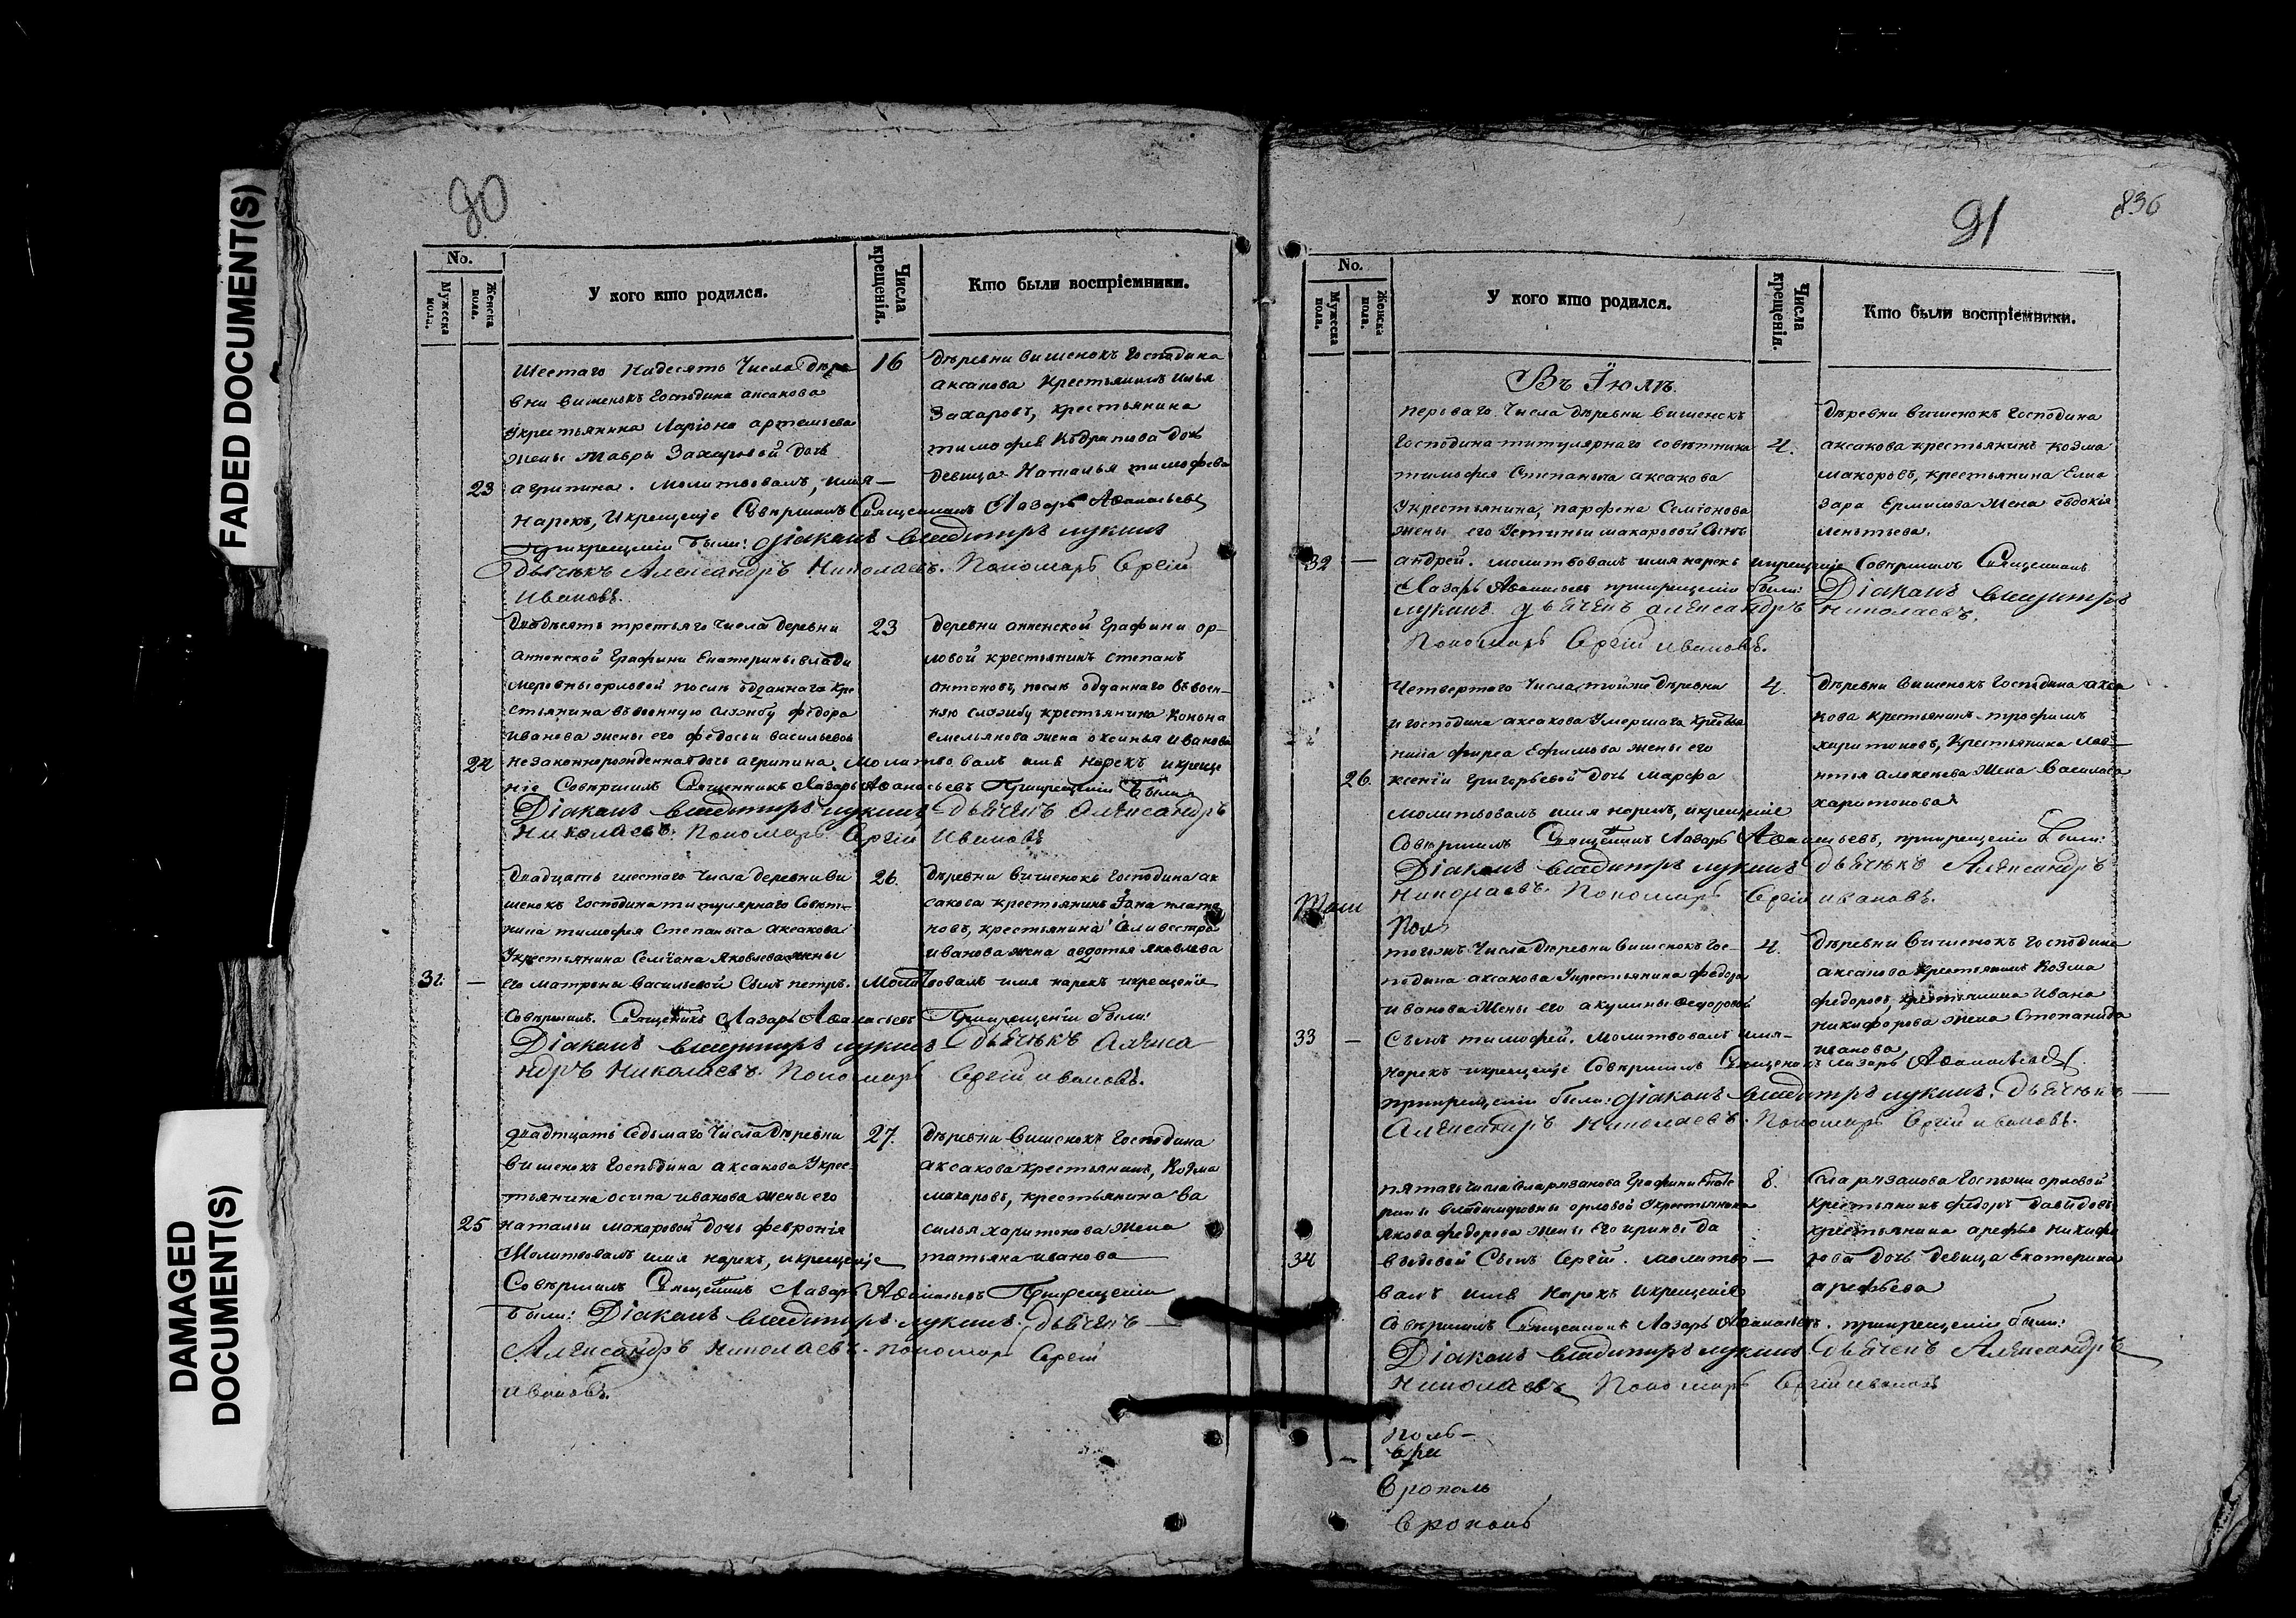 FADED DOCUMENT(S)
DAMAGED
DOCUMENT(S)
90
No.
Мужеска пола.
Женска пола.
У кого кто родился.
Числа крещенія.
Кто были воспріемники.
Шестаго Надесять Числа Дере 16
вни вишенокъ Господина аксакова
Укрестьянина Ларіона артемьева
жены мавры Захаровой дочь
23 агрипина. молитвовалъ, имя—
нарекъ, Икрещеніе Совершилъ Священникъ Лазарь Аѳанасьевъ
Прикрещеніи были: діаконъ владимиръ лукинъ
дьячекъ Александръ Николаевъ. Пономарь Сергій
Ивановъ.
деревни вишенокъ Господина
аксакова Крестьянинъ илья
Захаровъ, крестьянина
тимофея дочь
девица Наталья тимофева
Двадцать третьяго числа деревни 23
анненской Графини Екатерины влади
меровны орловой после отданнаго кре
стьянина въвоенную службу федора
иванова жены его федосьи васильевой
24 незаконнорожденная дочь агрипина. Молитвовалъ имя нарекъ икреще
ніе Совершилъ Священникъ Лазарь Аѳанасьевъ Прикрещеніи были
Діаконъ владимиръ лукинъ дьячекъ Александръ
Николаевъ. Пономарь Сергій Ивановъ
деревни анненской Графини ор-
ловой крестьянинъ степанъ
антоновъ, после отданнаго въвоен-
ную службу крестьянина Конона
емельянова жена оксинья иванова
Двадцать шестаго числа деревни ви 26
шенокъ Господина титулярнаго Совет-
ника тимофея Степаныча аксакова
Укрестьянина Семіона Яковлева жены
31. — его матрены васильевой Сынъ петръ. Молитвовалъ имя нарекъ икрещеніе
Совершилъ. Священникъ Лазарь Аѳанасьевъ Прикрещеніи были:
Діаконъ владимиръ лукинъ дьячекъ Алекса
ндръ Николаевъ. Пономарь Сергій ивановъ.
деревни вишенокъ Господина ак
сакова крестьянинъ плато
новъ, крестьянина Селивестра
иванова жена авдотья яковлева
Двадцать седьмаго Числа деревни 27.
вишенокъ Господина аксакова Укрес-
тьянина осипа иванова жены его
25 натальи макаровой дочь февронія
Молитвовалъ имя нарекъ, икрещеніе
Совершилъ Священникъ Лазарь Аѳанасьевъ Прикрещеніи
были: Діаконъ владимиръ лукинъ. дьячекъ —
Александръ Николаевъ. Пономарь Сергій
ивановъ.
деревни вишенокъ Господина
аксакова крестьянинъ, Козма
макаровъ, крестьянина ва
силья харитонова жена
татьяна иванова
91
836
No.
Мужеска пола.
Женска пола.
У кого кто родился.
Числа крещенія.
Кто были воспріемники.
Въ Іюлѣ.
перваго Числа деревни вишенокъ
Господина титулярнаго советника 4.
тимофея Степаныча аксакова
Укрестьянина, парфена Семіонова
жены его Устиньи макаровой Сынъ
32 — андрей. молитвовалъ имя нарекъ икрещеніе Совершилъ Священникъ
Лазарь Аѳанасьевъ прикрещеніи были: Діаконъ владимиръ
лукинъ дьячекъ александръ Николаевъ.
Пономарь Сергій ивановъ.
деревни вишенокъ Господина
аксакова крестьянинъ козма
макаровъ, крестьянина Елиа
зара Ермилова жена евдокія
леньтьева.
Четвертаго Числа тойже деревни 4.
игосподина аксакова Умершаго крестья
нина фирса Ефимова жены его
26. ксеніи григорьевой дочь марфа
молитвовалъ имя нарекъ, икрещеніе
Совершилъ Священникъ Лазарь Аѳанасьевъ, прикрещеніи были:
Діаконъ владимиръ лукинъ дьячекъ Александръ
Николаевъ. Пономарь Сергій ивановъ.
деревни вишенокъ Господина акса
кова крестьянинъ трофимъ
харитоновъ, Крестьянина лав—
нтья алексеева жена василиса
харитонова
Пол
тогожъ Числа деревни вишенокъ Гос- 4.
подина аксакова Укрестьянина федора
иванова Жены его акулины федоровой
33 — Сынъ тимофей. молитвовалъ имя-
нарекъ икрещеніе Совершилъ Священникъ Лазарь Аѳанасьевъ
прикрещеніи были: діаконъ владимиръ лукинъ. дьячекъ —
Александръ Николаевъ. Пономарь Сергій ивановъ.
деревни вишенокъ Господина
аксакова крестьянинъ Козма
федоровъ, крестьянина Ивана
никифорова жена Степанида
иванова
пятаго числа села рязанова Графини Екате 8.
рины владимировны орловой Укрестьянина
якова федорова жены его ирины да
34 выдовой Сынъ Сергій. молитво —
валъ имя нарекъ икрещеніе
Совершилъ Священникъ Лазарь Аѳанасьевъ. прикрещеніи были:
Діаконъ владимиръ лукинъ дьячекъ Александръ
Николаевъ Пономарь Сергій ивановъ
Села рязанова Госпожи орловой
крестьянинъ федоръ давыдовъ
крестьянина арефья никифо
рова дочь девица Екатерина
арефьева